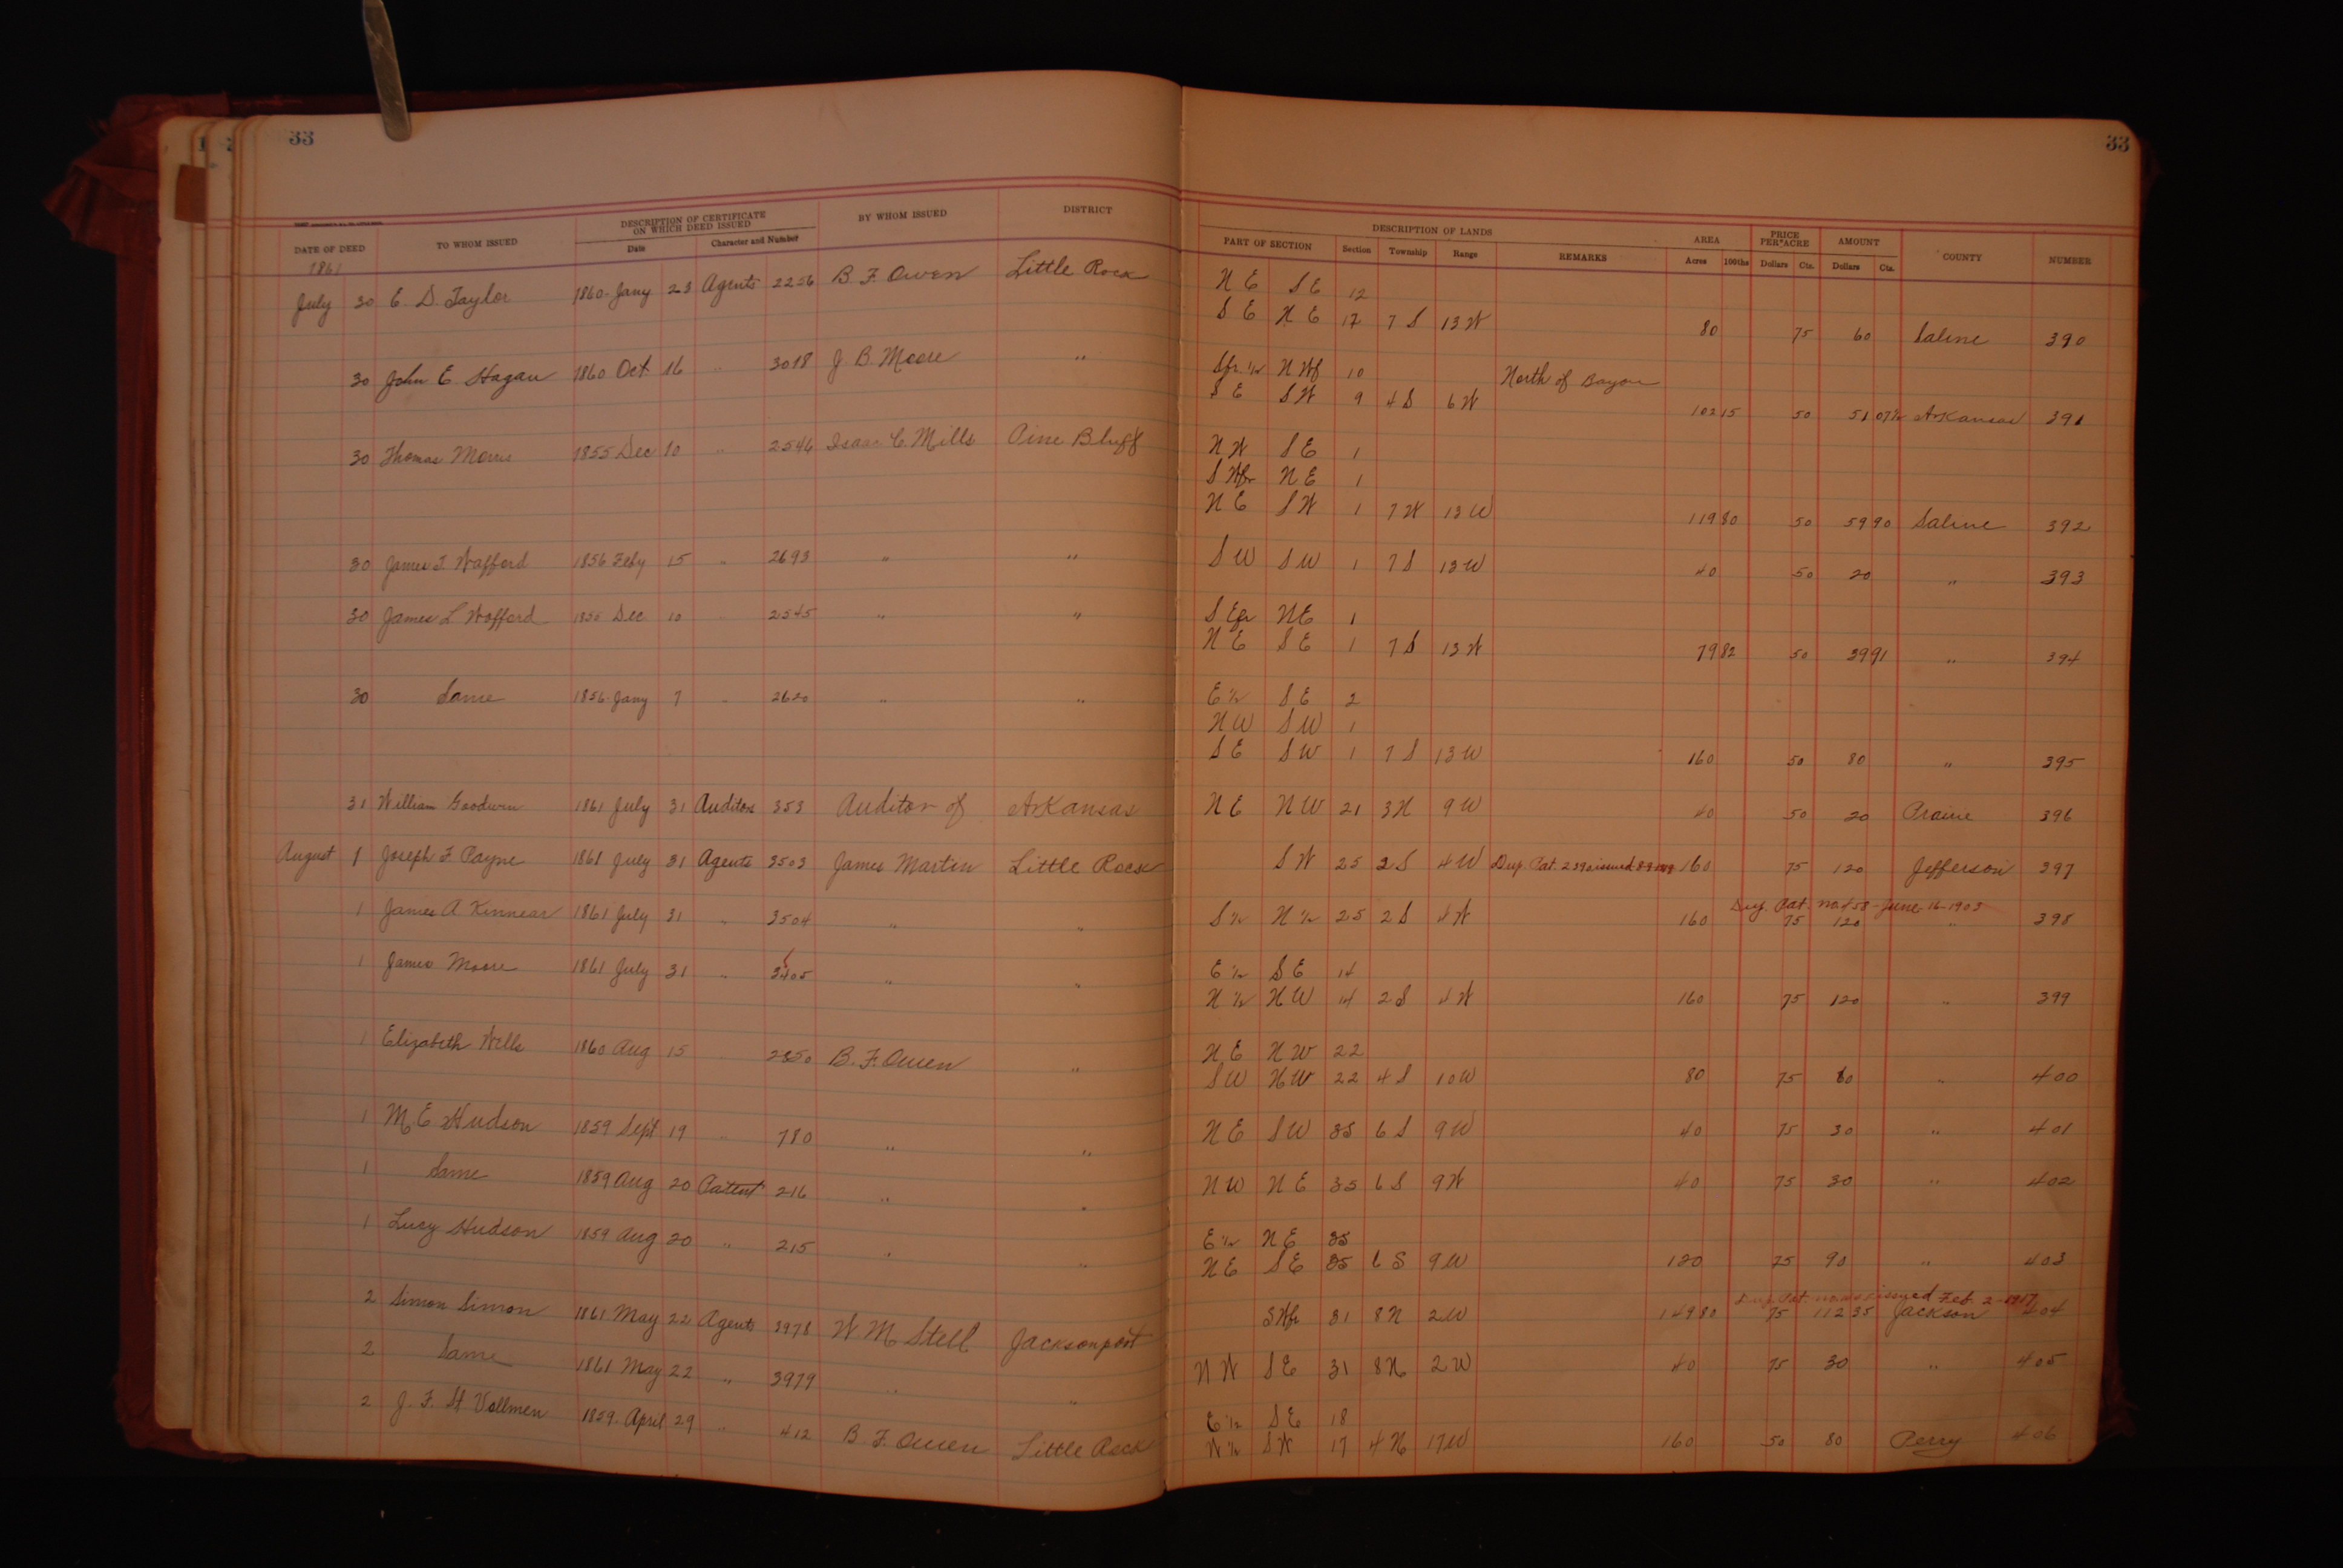 33
33
DATE OF DEED TO WHOM ISSUED DESCRIPTION OF CERTIFICATE ON WHICH DEED ISSUED Date Character and Number BY WHOM ISSUED DISTRICT DESCRIPTION OF LANDS PART OF SECTION Section Township Range REMARKS AREA Acres 100ths PRICE PER ACRE Dollars Cts. AMOUNT Dollars Cts. COUNTY NUMBER
1861
July 30 E. D. Taylor 1860 Jany 23 Agents 2256 B. F. Owen Little Rock N E S E 12
S E N E 17 7 S 13 W 80 75 60 Saline 390
30 John E. Hagan 1860 Oct 16 " 3018 J. B. Moore " Sfr. 1/2 N Wf 10 North of Bayou
S E S W 9 4 S 6 W 102 15 50 51 07 1/2 Arkansas 391
30 Thomas Morris 1855 Dec 10 " 2546 Isaac C. Mills Pine Bluff N W S E 1
S Wfr N E 1
N E S W 1 7 W 13 W 119 80 50 59 90 Saline 392
30 James T. Wafford 1856 Feby 15 " 2693 " " S W S W 1 7 S 13 W 40 50 20 " 393
30 James L Wofford 1855 Dec 10 " 2545 " " S Efr N E 1
N E S E 1 7 S 13 W 79 82 50 39 91 " 394
30 Same 1856 Jany 7 " 2620 " " E 1/2 S E 2
N W S W 1
S E S W 1 7 S 13 W 160 50 80 " 395
31 William Goodwin 1861 July 31 Auditors 353 Auditor of Arkansas N E N W 21 3 N 9 W 40 50 20 Prairie 396
August 1 Joseph F. Payne 1861 July 31 Agents 3503 James Martin Little Rock S W 25 2 S 4 W Dup. Pat. issued 160 75 120 Jefferson 397
Dup. Pat. June 16-1903
1 James A Kinnear 1861 July 31 " 3504 " " S 1/2 N 1/2 25 2 S 4 W 160 75 120 " 398
1 James Moore 1861 July 31 " 3405 " " E 1/2 S E 14
N 1/2 N W 14 2 S 4 W 160 75 120 " 399
1 Elizabeth Wells 1860 Aug 15 2850 B. F. Owen " N E N W 22
S W N W 22 4 S 10 W 80 75 60 " 400
1 M. E Hudson 1859 Sept 19 " 780 " " N E S W 35 6 S 9 W 40 75 30 " 401
1 Same 1859 Aug 20 Patent 216 " " N W N E 35 6 S 9 W 40 75 30 " 402
1 Lucy Hudson 1859 Aug 20 " 215 " " E 1/2 N E 35
N E S E 35 6 S 9 W 120 75 90 " 403
Dup. Pat. issued Feb. 2-1917
2 Simon Simon 1861 May 22 Agents 3978 W M Stell Jacksonport S Wfr 31 8 N 2 W 149 80 75 112 35 Jackson 404
2 Same 1861 May 22 " 3979 " " N W S E 31 8 N 2 W 40 75 30 " 405
2 J. F. St Vollmen 1859 April 29 " 412 B. F. Owen Little Rock E 1/2 S E 18
W 1/2 S W 17 4 N 17 W 160 50 80 Perry 406